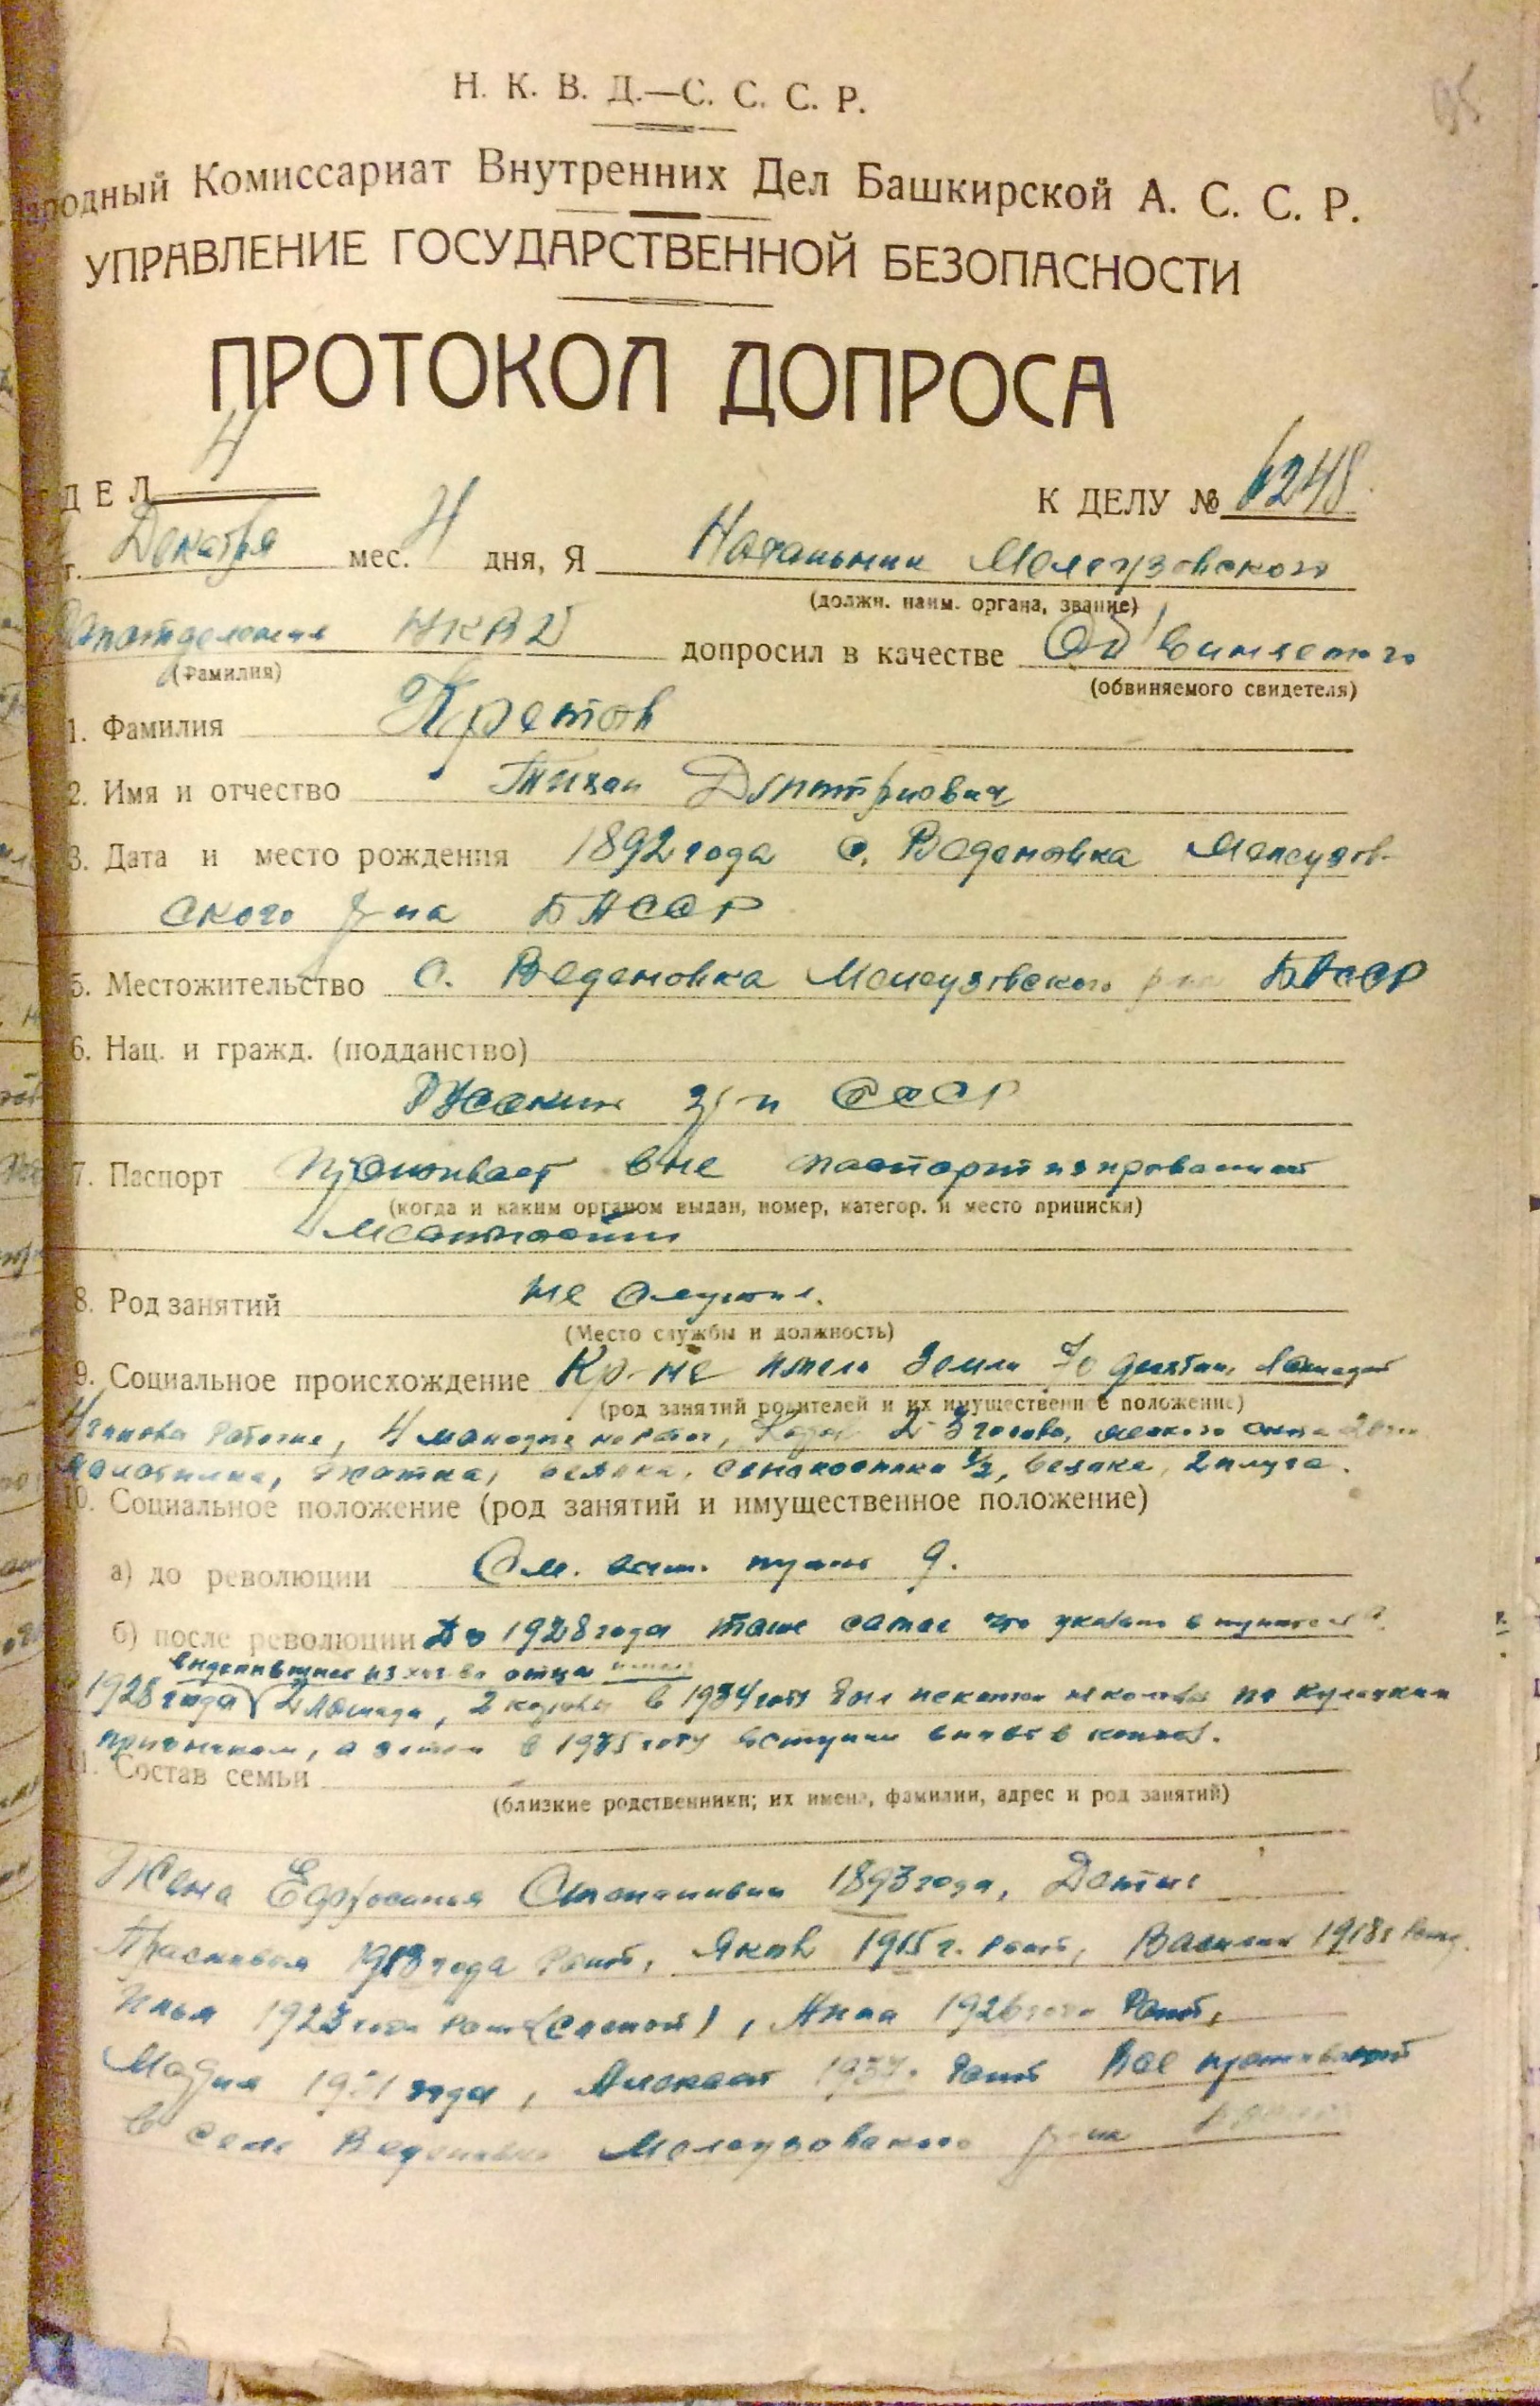 95
Н. К. В. Д.—С. С. С. Р.
народный Комиссариат Внутренних Дел Башкирской А. С. С. Р.
УПРАВЛЕНИЕ ГОСУДАРСТВЕННОЙ БЕЗОПАСНОСТИ
ПРОТОКОЛ ДОПРОСА
ДЕЛ 4 К ДЕЛУ № 6248
г. Декабря мес. 4 дня, Я Начальник Мелеузовского
(должн. наим. органа, звание)
НКВД допросил в качестве Обвиняемого
(Фамилия) (обвиняемого свидетеля)
1. Фамилия Кретов
2. Имя и отчество Тихон Дмитриович
3. Дата и место рождения 1892 года с. Веденовка Мелеузов-
ского р-на БАССР
5. Местожительство с. Веденовка Мелеузовского р-на БАССР
6. Нац. и гражд. (подданство)
Русский гр-н СССР
7. Паспорт Проживает вне паспортизированной
(когда и каким органом выдан, номер, категор. и место приписки)
местности
8. Род занятий не служил.
(Место службы и должность)
9. Социальное происхождение Кр-не имели Земли 70 десятин, лошадей
(род занятий родителей и их имущественное положение)
4 голова рабочие, 4 молодые не раб., Коров 2-3 голова, мелкого скота
молотилка, жатка, веялка, сенокосилка ½, 2 плуга.
10. Социальное положение (род занятий и имущественное положение)
а) до революции См. выш. пункт 9.
б) после революции До 1928 года тоже самое что указано в пункте 9.
выделившись из хоз-ва отца имел
1928 года 2 лошади, 2 коровы в 1934 году был исключен из колхоза по кулацким
признакам, а затем в 1935 году вступил вновь в колхоз.
11. Состав семьи
(близкие родственники; их имена, фамилии, адрес и род занятий)
Жена Ефросинья Степановна 1893 года, Дети:
Прасковья 1913 года рожд, Яков 1915 г. рожд, Василий 1918 г рожд.
Илья 1923 года рожд (слепой), Анна 1926 года рожд,
Мария 1931 года, Алексей 1937. рожд Все проживают
в селе Веденовка Мелеузовского р-на БАССР